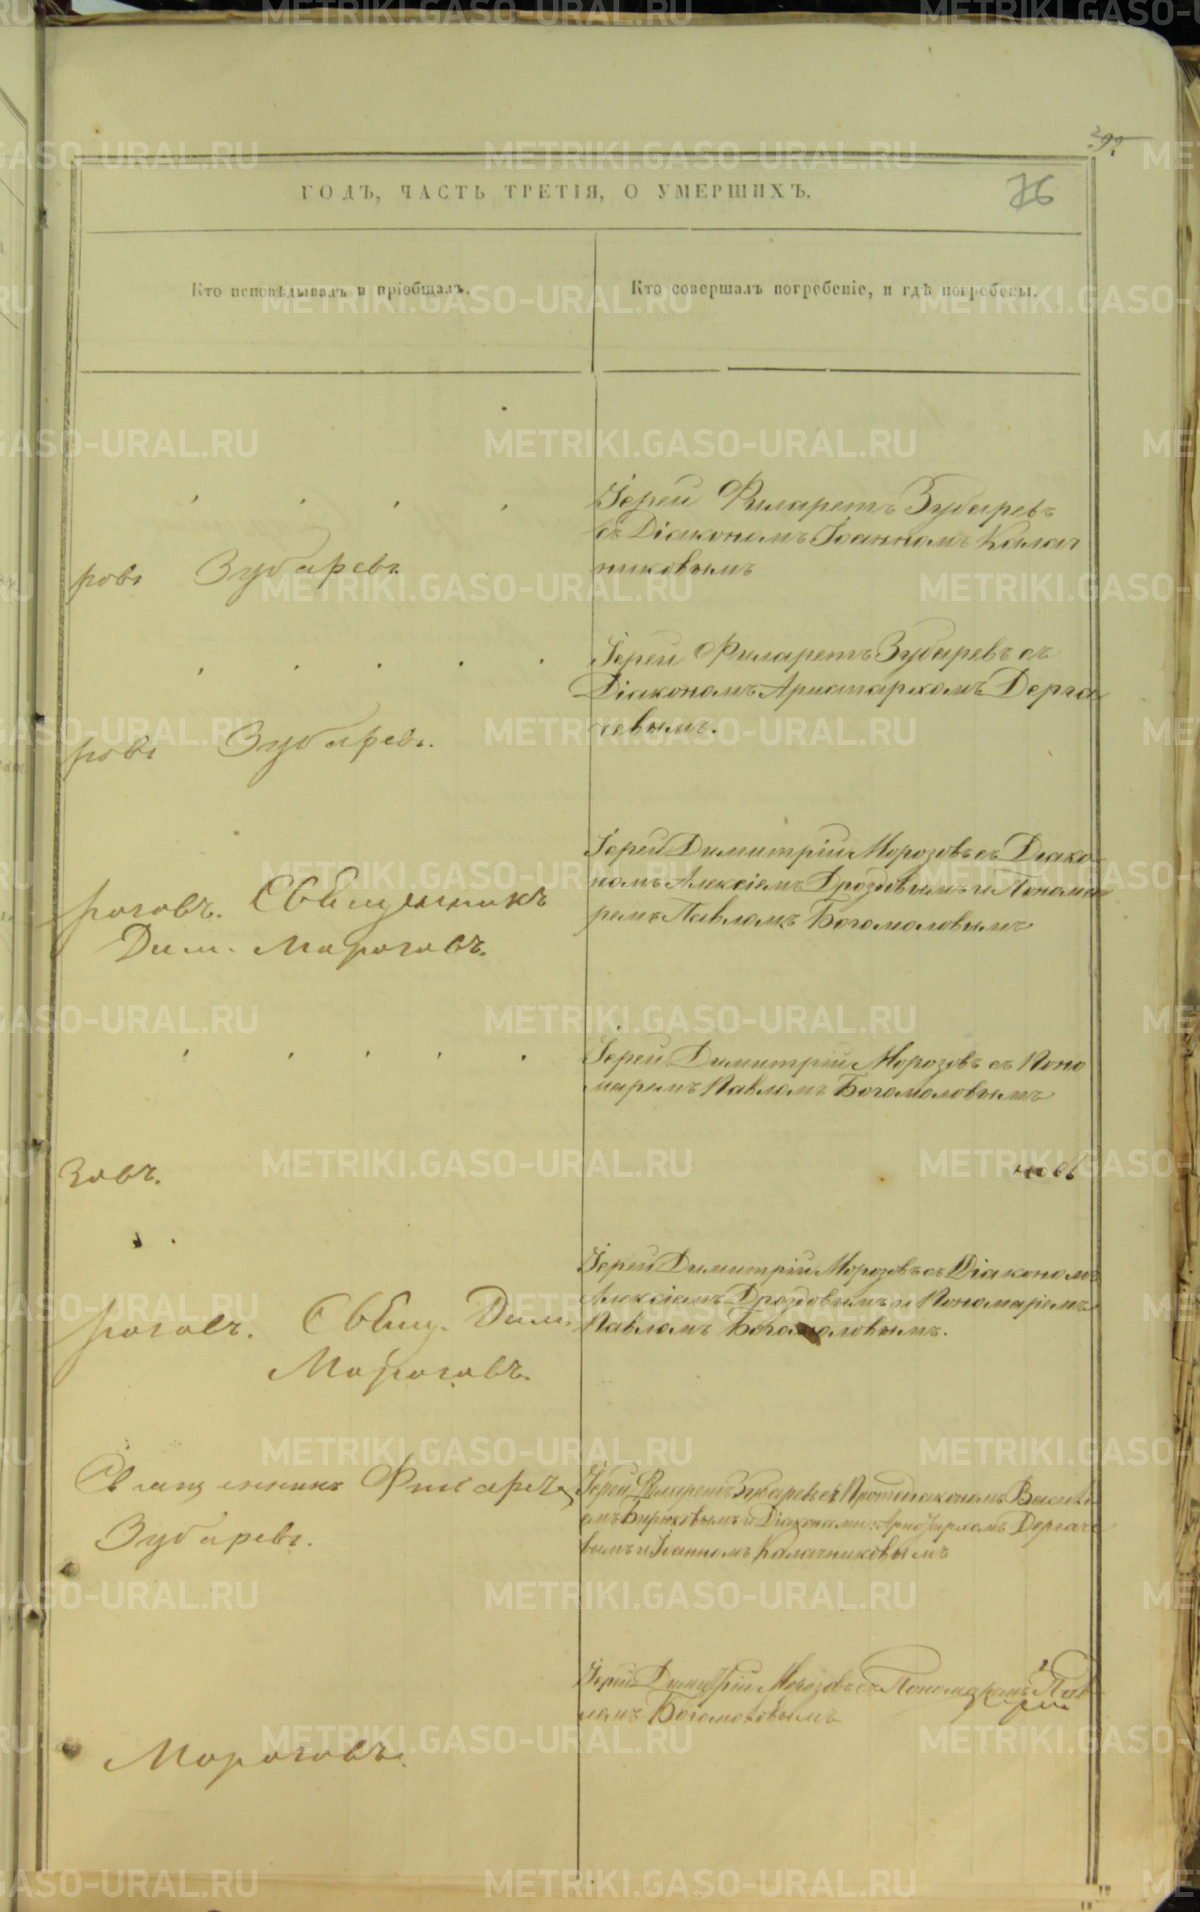 392
76
ГОДЪ, ЧАСТЬ ТРЕТІЯ, О УМЕРШИХЪ.
Кто исповѣдывалъ и пріобщалъ.
Кто совершалъ погребеніе, и гдѣ погребены.
Іерей Филаретъ Зубаревъ
съ Діакономъ Іоанномъ Калач
никовымъ
ровъ Зубаревъ
Іерей Филаретъ Зубаревъ съ
Діакономъ Аристархомъ Дерга
чевымъ.
ровъ Зубаревъ.
Іерей Димитрій Морозовъ съ Діако
номъ Алексіемъ Дроздовымъ и Понома
ремъ Павломъ Богомоловымъ
розовъ. Священникъ
Дим. Морозовъ.
Іерей Димитрій Морозовъ съ Поно
маремъ Павломъ Богомоловымъ
зовъ.
Іерей Димитрій Морозовъ съ Діакономъ
Алексіемъ Дроздовымъ и Пономаремъ
Павломъ Богомоловымъ.
розовъ. Свящ. Дим.
Морозовъ.
Священникъ Филаретъ
Зубаревъ.
Іерей Филаретъ Зубаревъ съ Протодіакономъ Васи
емъ Бирюковымъ и Діаконами: Аристархомъ Дергаче
вымъ и Іоанномъ Калачниковымъ
Іерей Димитрій Морозовъ съ Пономаремъ Пав
ломъ Богомоловымъ
Морозовъ.
METRIKI.GASO-URAL.RU